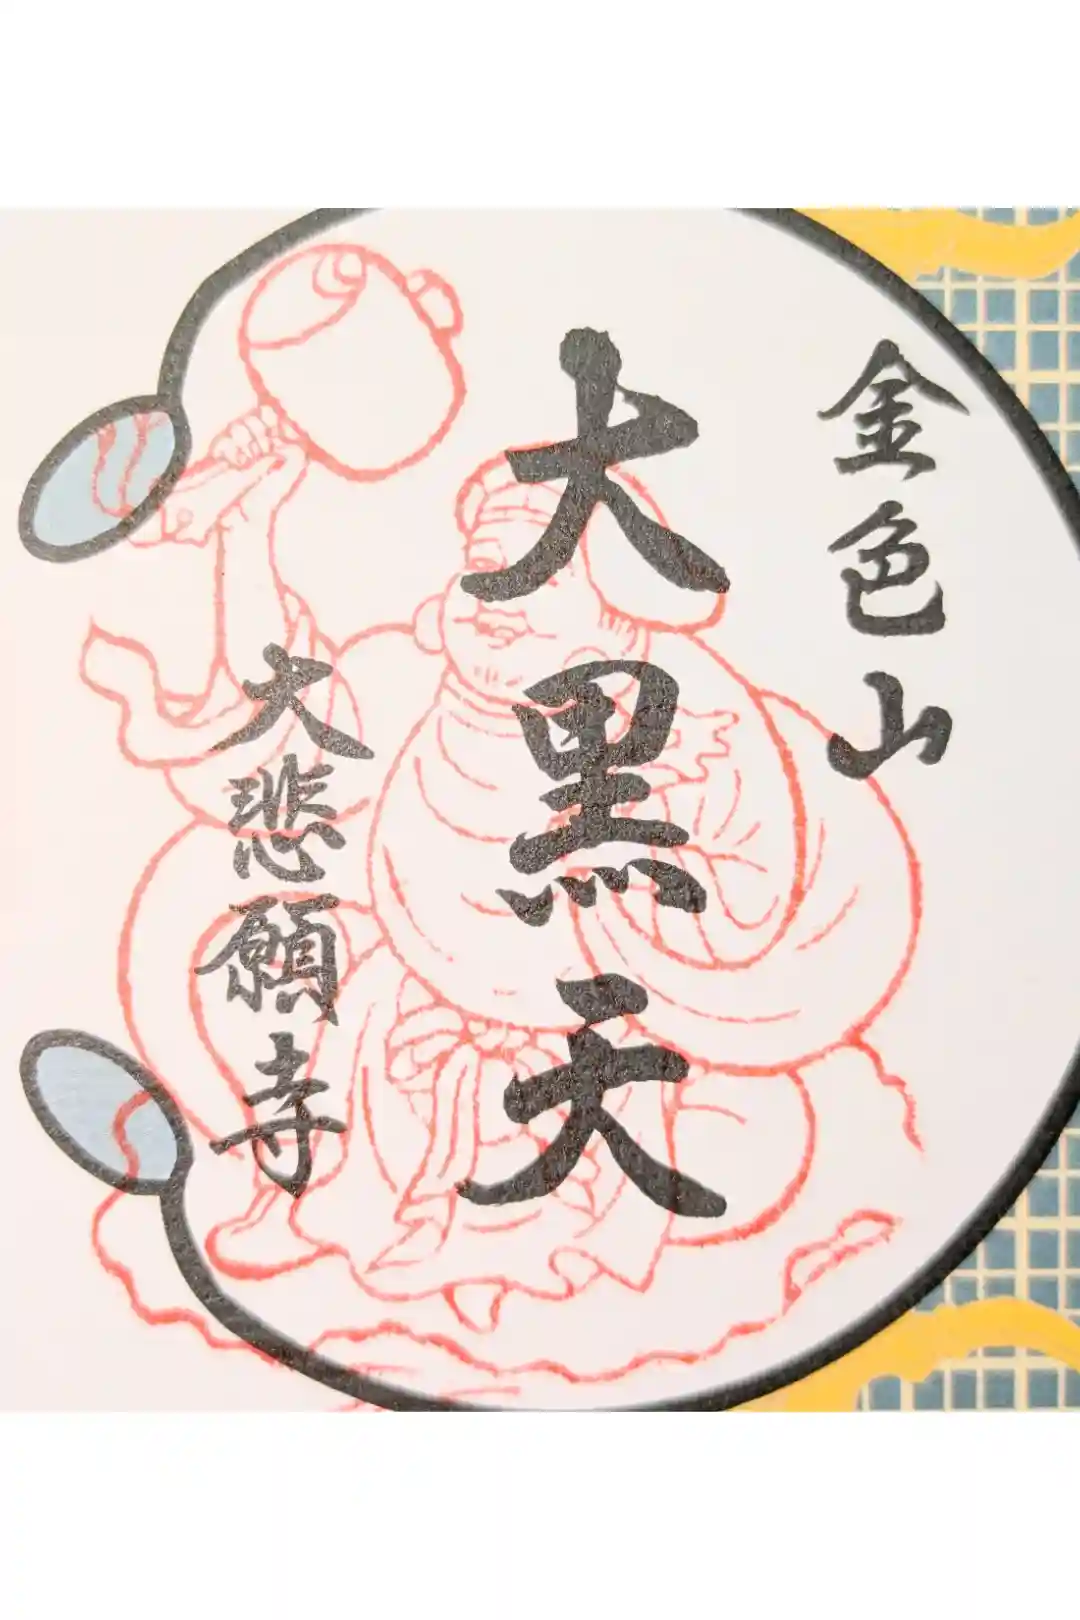 金色山
大黒天
大悲願寺